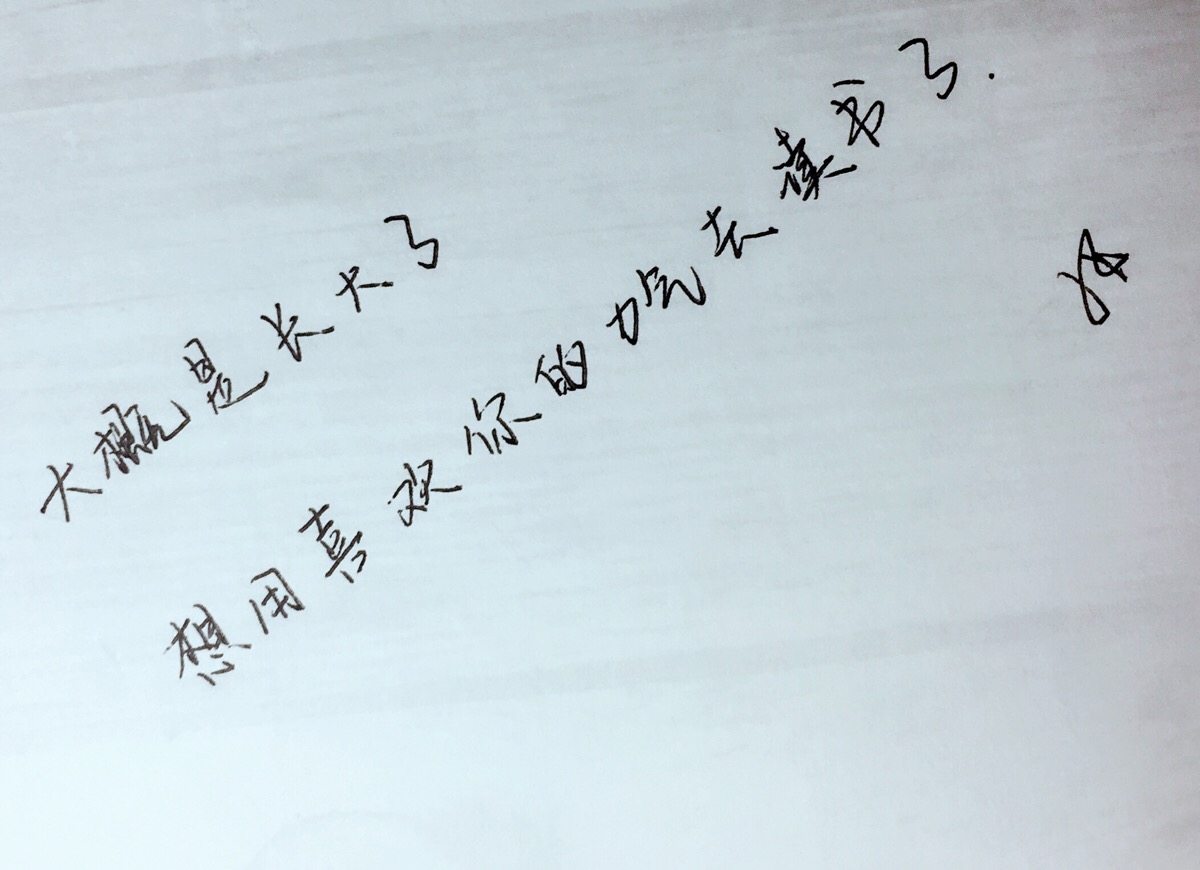 大概是长大了
想用喜欢你的力气去读书了.